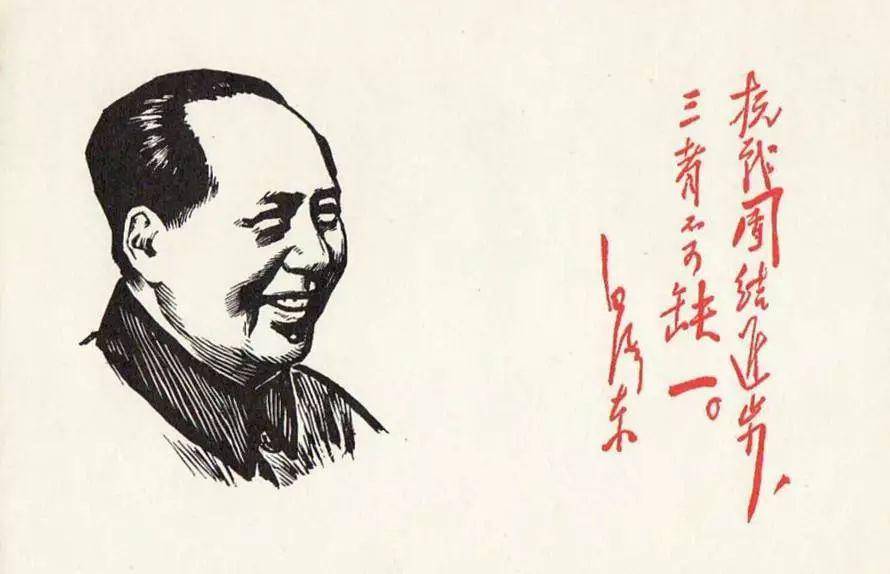 抗战团结进步、
三者不可缺一。
毛泽东